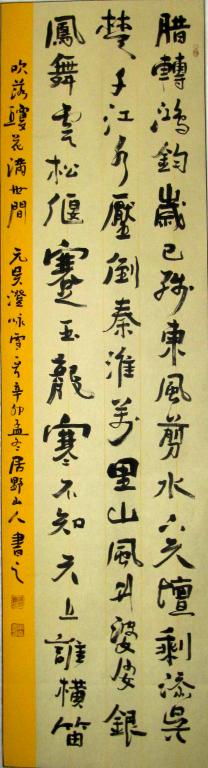 臘轉鴻鈞歲已殘東風剪水下天壇剩添吳
楚千江水壓倒秦淮萬里山風竹婆娑銀
鳳舞雲松偃蹇玉龍寒不知天上誰橫笛
吹落瓊花滿世間 元吳澄咏雪 辛卯孟冬居野山人書之